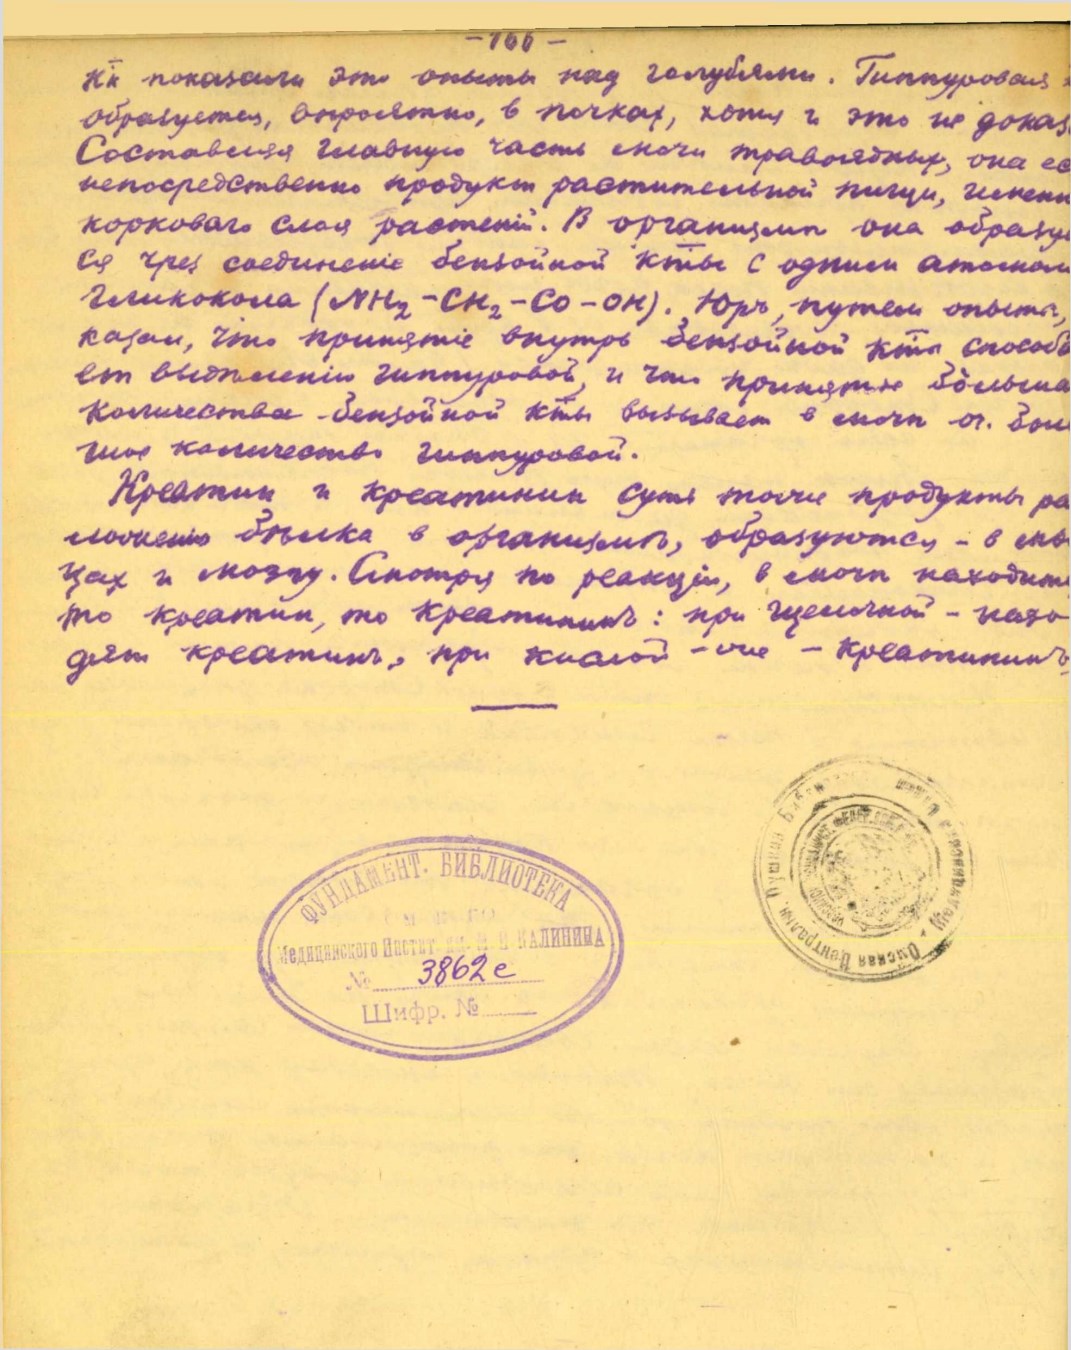 - 166 -
нiк показали это опыты над голубями. Гиппуровая
образуется, вероятно, в почках, хотя и это не доказ
Составляя главную часть мочи травоядных, она ес
непосредственно продукт растительной пищи, именн
корковаго слоя растенiй. В организмѣ она образуе
ся чрез соединенiе бензойной кты с одним атомом
гликокола (NH2-CH2-CO-OH). Юръ, путем опыта,
казал, что принятiе внутрь бензойной кты способ
ет выдѣленiю гиппуровой, и что принятiе больша
количества бензойной кты вызывает в мочѣ и бол
шое количество гиппуровой.
Креатин и креатинин суть тоже продукты ра
ложенiя бѣлка в организмѣ, образуются - в мы
цах и мозгу. Смотря по реакцiи, в мочѣ находит
то креатин, то креатининъ: при щелочной - нахо
дят креатинъ, при кислой - же - креатининъ.
ФУНДАМЕНТ. БИБЛИОТЕКА
Медицинского Инстит. им. М. И КАЛИНИНА
№ 3862е
Шифр. №
Омская Централь. Пушкин Библиотека